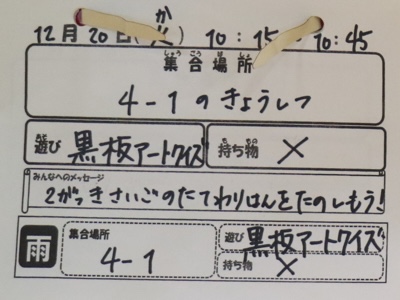 12月20日(火) 10:15～10:45
集合場所
4-1のきょうしつ
遊び 黒板アートクイズ 持ち物 ×
みんなへのメッセージ
2がっきさいごのたてわりはんをたのしもう!
雨 集合場所 4-1 遊び 黒板アートクイズ
持ち物 ×